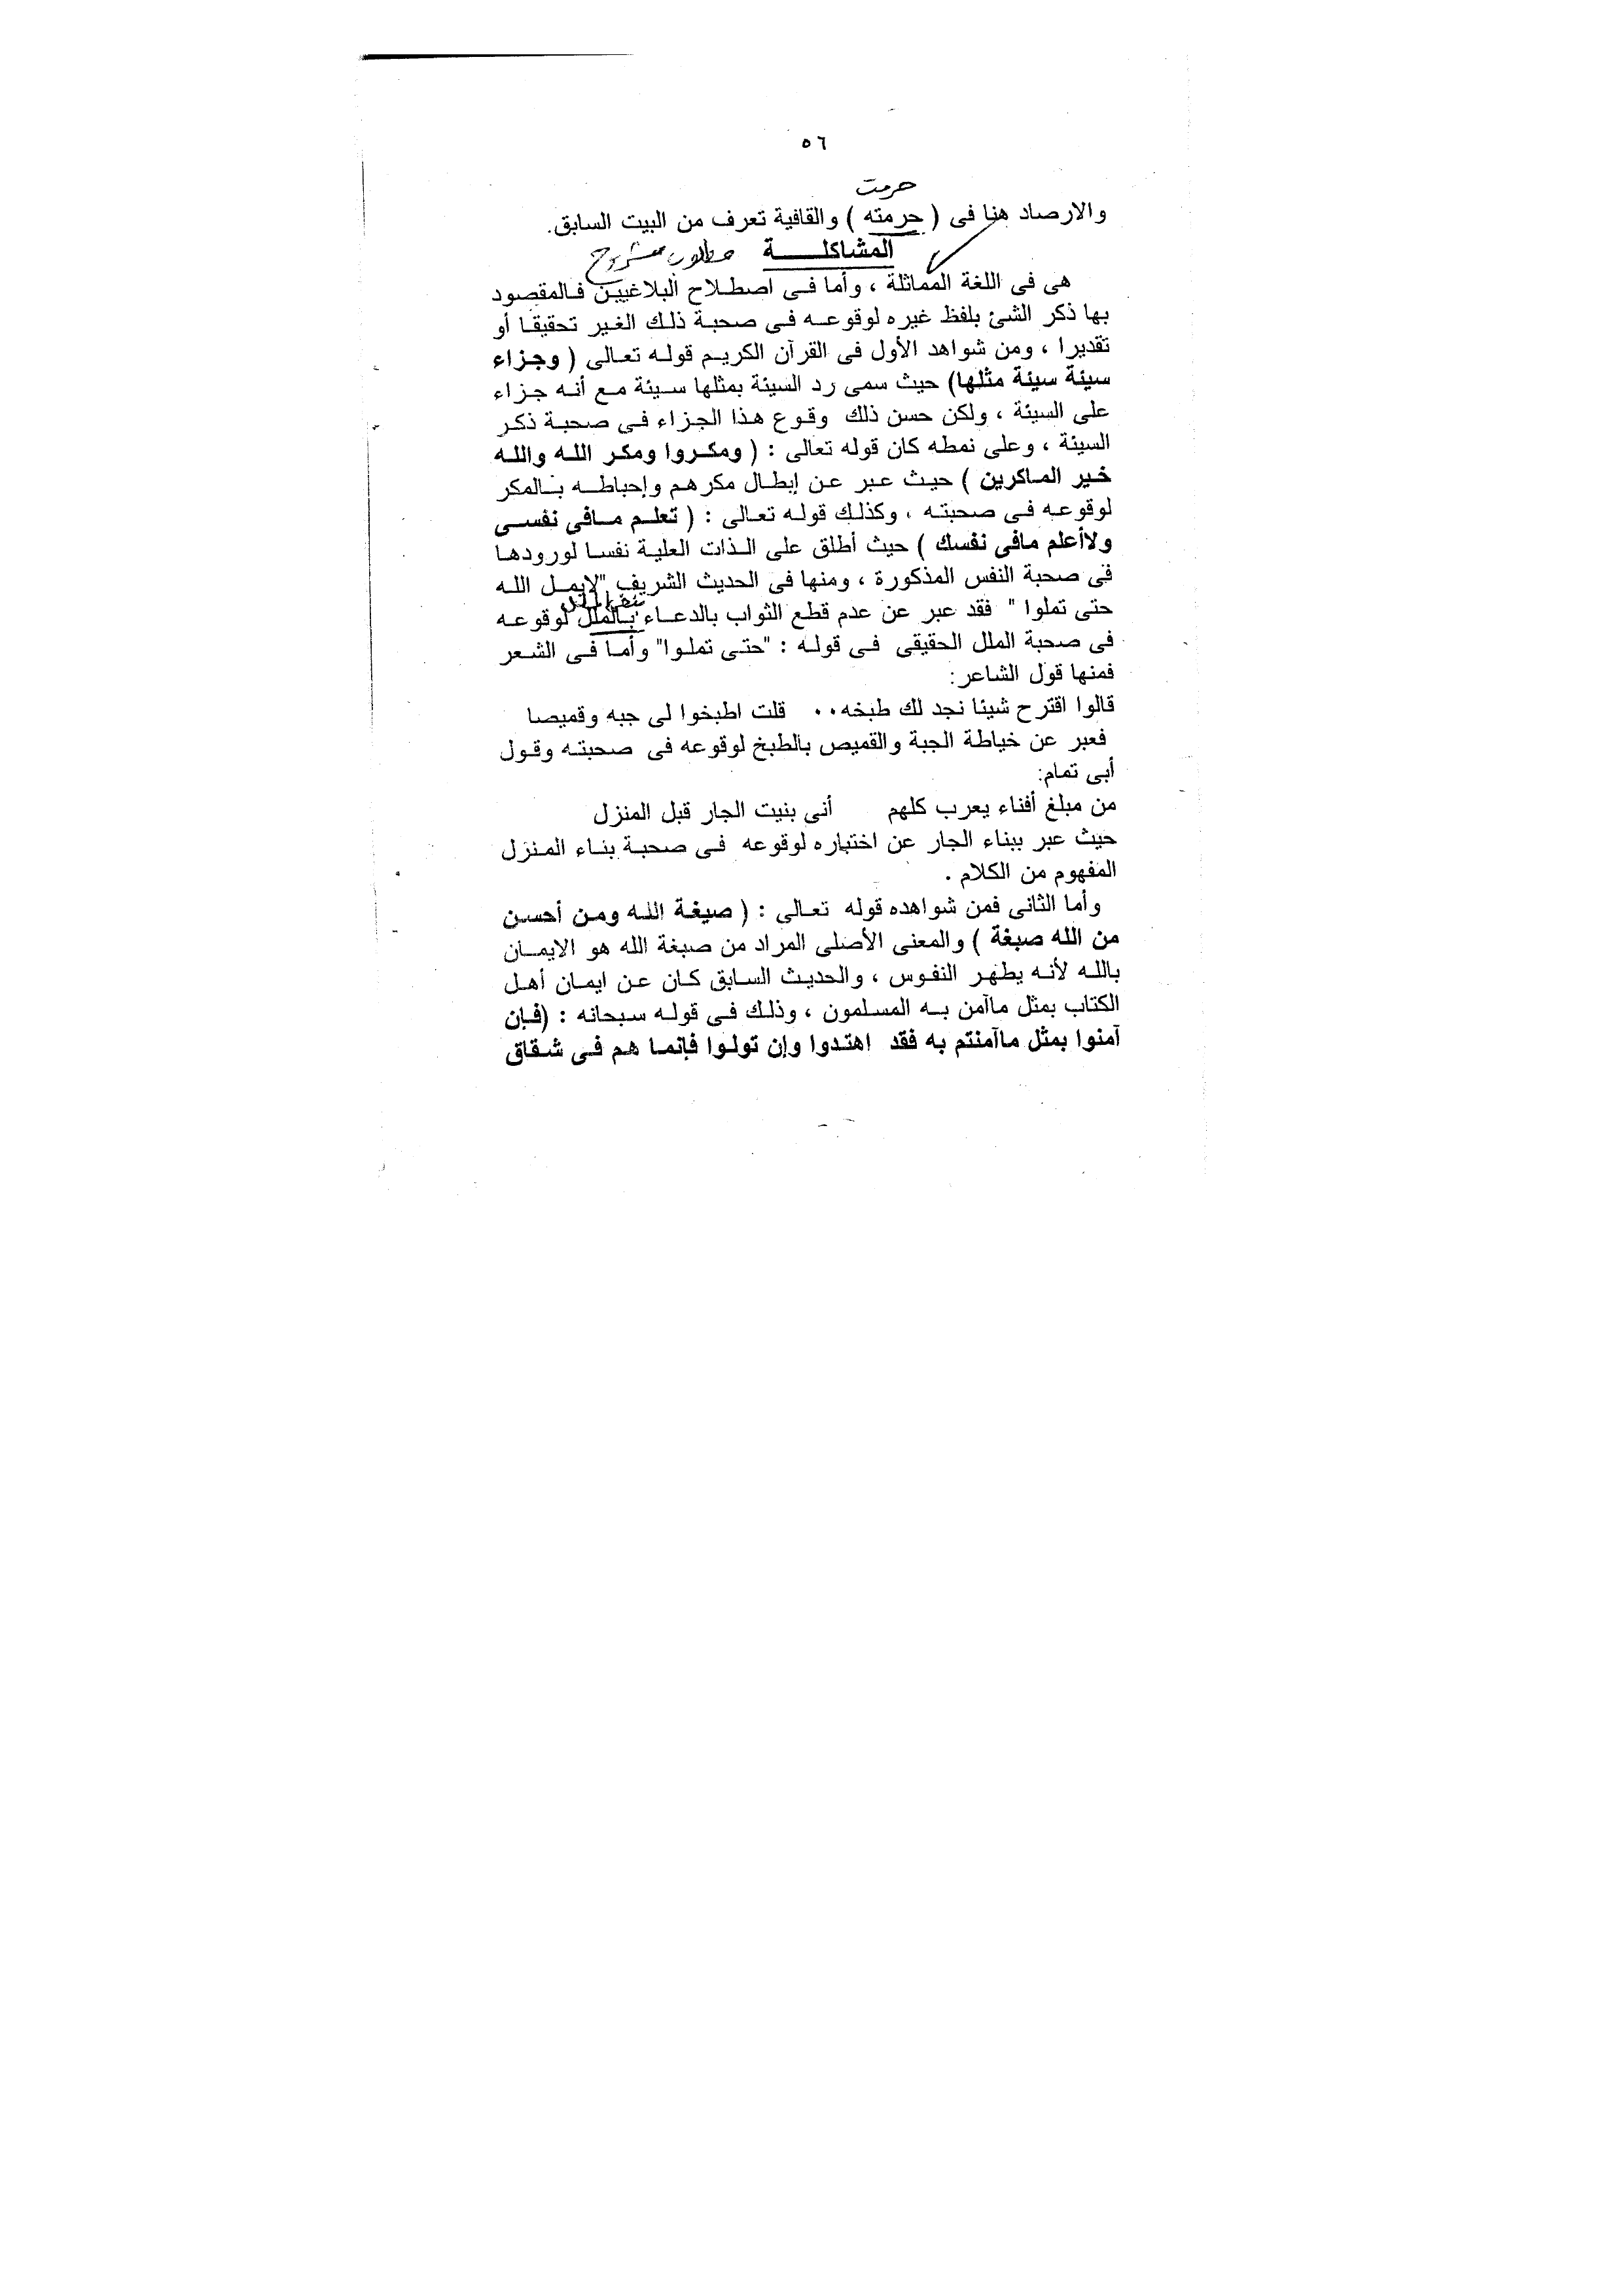 ٥٦
حرمت
والارصاد هنا فى ( حرمته ) والقافية تعرف من البيت السابق.
المشاكلــــــة مطلوب مشروح
هى فى اللغة المماثلة ، وأما فى اصطلاح البلاغيين فالمقصود
بها ذكر الشئ بلفظ غيره لوقوعه فى صحبة ذلك الغير تحقيقا أو
تقديرا ، ومن شواهد الأول فى القرآن الكريم قوله تعالى ( وجزاء
سيئة سيئة مثلها) حيث سمى رد السيئة بمثلها سيئة مع أنه جزاء
على السيئة ، ولكن حسن ذلك وقوع هذا الجزاء فى صحبة ذكر
السيئة ، وعلى نمطه كان قوله تعالى : ( ومكروا ومكر الله والله
خير الماكرين ) حيث عبر عن إبطال مكرهم وإحباطه بالمكر
لوقوعه فى صحبته ، وكذلك قوله تعالى : ( تعلم مافى نفسى
ولاأعلم مافى نفسك ) حيث أطلق على الذات العلية نفسا لورودها
فى صحبة النفس المذكورة ، ومنها فى الحديث الشريف "لايمل الله
حتى تملوا " فقد عبر عن عدم قطع الثواب بالدعاء بالملل لوقوعه
فى صحبة الملل الحقيقى فى قوله : "حتى تملوا" وأما فى الشعر
فمنها قول الشاعر:
قالوا اقترح شيئا نجد لك طبخه٠٠ قلت اطبخوا لى جبه وقميصا
فعبر عن خياطة الجبة والقميص بالطبخ لوقوعه فى صحبته وقول
أبى تمام:
من مبلغ أفناء يعرب كلهم أنى بنيت الجار قبل المنزل
حيث عبر ببناء الجار عن اختباره لوقوعه فى صحبة بناء المنزل
المفهوم من الكلام .
وأما الثانى فمن شواهده قوله تعالى : ( صيغة الله ومن أحسن
من الله صبغة ) والمعنى الأصلى المراد من صبغة الله هو الايمان
بالله لأنه يطهر النفوس ، والحديث السابق كان عن ايمان أهل
الكتاب بمثل ماآمن به المسلمون ، وذلك فى قوله سبحانه : (فإن
آمنوا بمثل ماآمنتم به فقد اهتدوا وإن تولوا فإنما هم فى شقاق